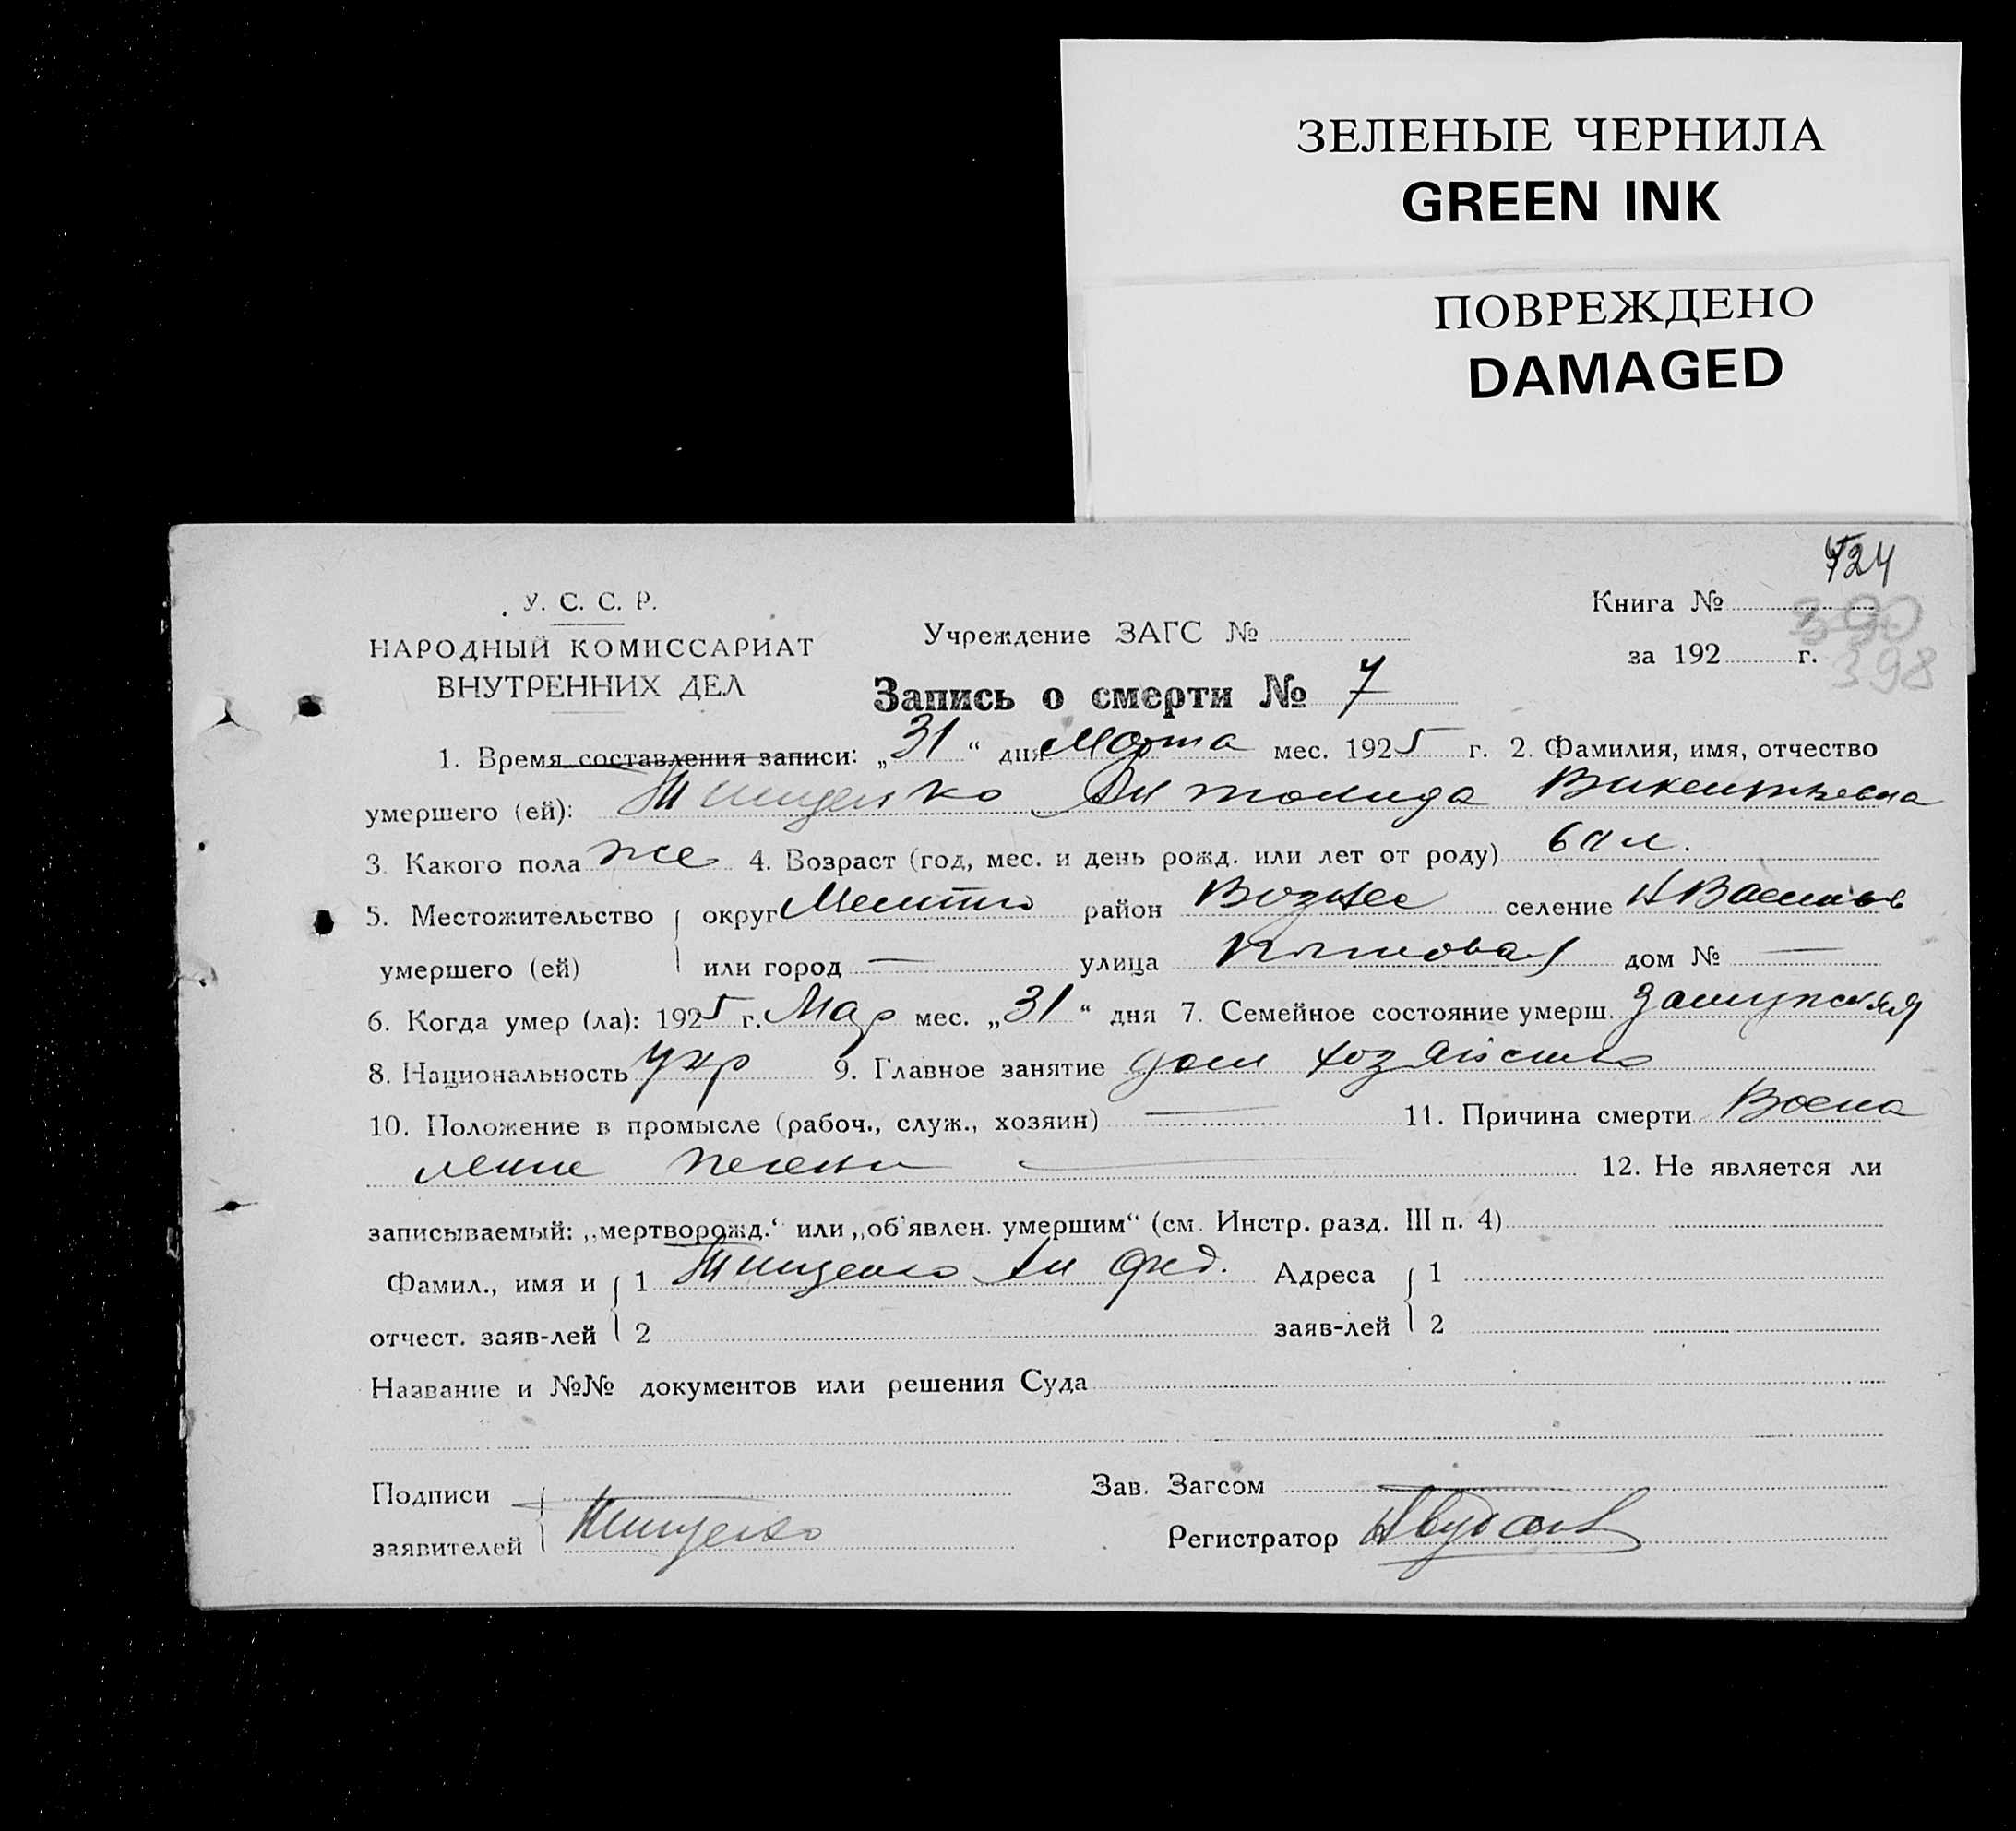 ЗЕЛЕНЫЕ ЧЕРНИЛА
GREEN INK
ПОВРЕЖДЕНО
DAMAGED
У. С. С. Р.
НАРОДНЫЙ КОМИССАРИАТ
ВНУТРЕННИХ ДЕЛ
Учреждение ЗАГС №
724
Книга №
390
за 192 г.
398
Запись о смерти № 7
1. Время составления записи: „31“ дня Марта мес. 1925 г. 2. Фамилия, имя, отчество
умершего (ей): Тищенко Викентьевна
3 Какого пола же 4. Возраст (год, мес. и день рожд. или лет от роду) 60 л.
5. Местожительство округ Мелитто район Вознес селение Н Васильев
умершего (ей) или город — улица дом № —
6. Когда умер (ла): 1925 г. Мар мес. „31“ дня 7. Семейное состояние умерш. замужняя
8. Национальность укр 9. Главное занятие дом хозяйство
10. Положение в промысле (рабоч., служ., хозяин) — 11. Причина смерти Воспа
ление печени — 12. Не является ли
записываемый: „мертворожд.‘ или „об'явлен. умершим“ (см. Инстр. разд. III п. 4)
Фамил., имя и 1 Тищенко Ан Фед. Адреса 1
отчест. заяв-лей 2 заяв-лей 2
Название и №№ документов или решения Суда
Подписи Зав. Загсом
заявителей Тищенко Регистратор